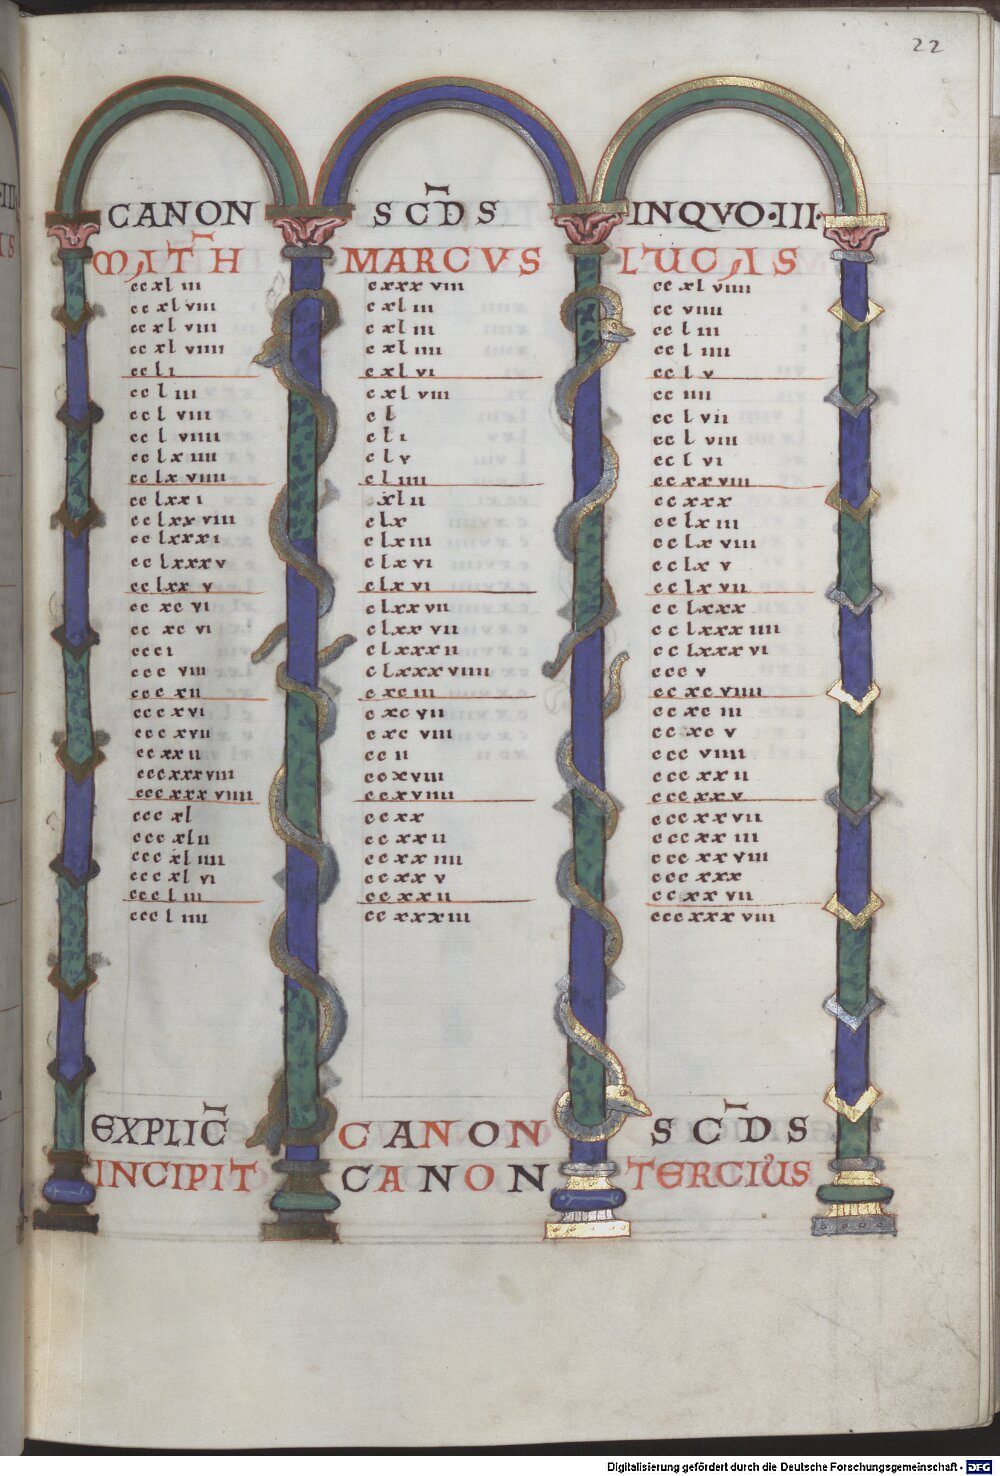 22
CANON SC̄DS INQVO·III·
MATH̄ MARCVS LUCAS
ccxl iii cxxx viii cc xl viiii
cc xl viii c xl iii cc viiii
cc xl viii c xl iii cc l iii
cc xl viiii c xl iiii cc l iiii
cc l i c xl vi cc l v
cc l iii c xl viii cc iiii
cc l viii c l cc l vii
cc l viiii c l i cc l viii
cc lx iiii c l v cc l vi
cc lx viiii c l iiii cc xx viii
cc lxx i xl ii cc xxx
cc lxx viiii c lx cc lx iii
cc lxxx i c lx iii cc lx viii
cc lxxx v c lx vi cc lx v
cc lxx v c lx vi cc lx vii
cc xc vi c lxx vii cc lxxx
cc xc vi c lxx vii cc lxxx iiii
ccc i c lxxx ii cc lxxx vi
ccc viii c lxxx viiii ccc v
ccc xii c xc iii cc xc viiii
ccc xvi c xc vii cc xc iii
ccc xvii c xc viii cc xc v
cc xx ii cc ii ccc viiii
ccc xxx viii cc xviii ccc xx ii
ccc xxx viiii cc xviiii ccc xx v
ccc xl cc xx ccc xx vii
ccc xl ii cc xx ii ccc xx iii
ccc xl iiii cc xx iiii ccc xx viii
ccc xl vi cc xx v ccc xxx
ccc l iii cc xx ii cc xx vii
ccc l iiii cc xxx iii ccc xxx viii
EXPLIC̄ CANON SC̄DS
INCIPIT CANON TERCIUS
Digitalisierung gefördert durch die Deutsche Forschungsgemeinschaft - DFG